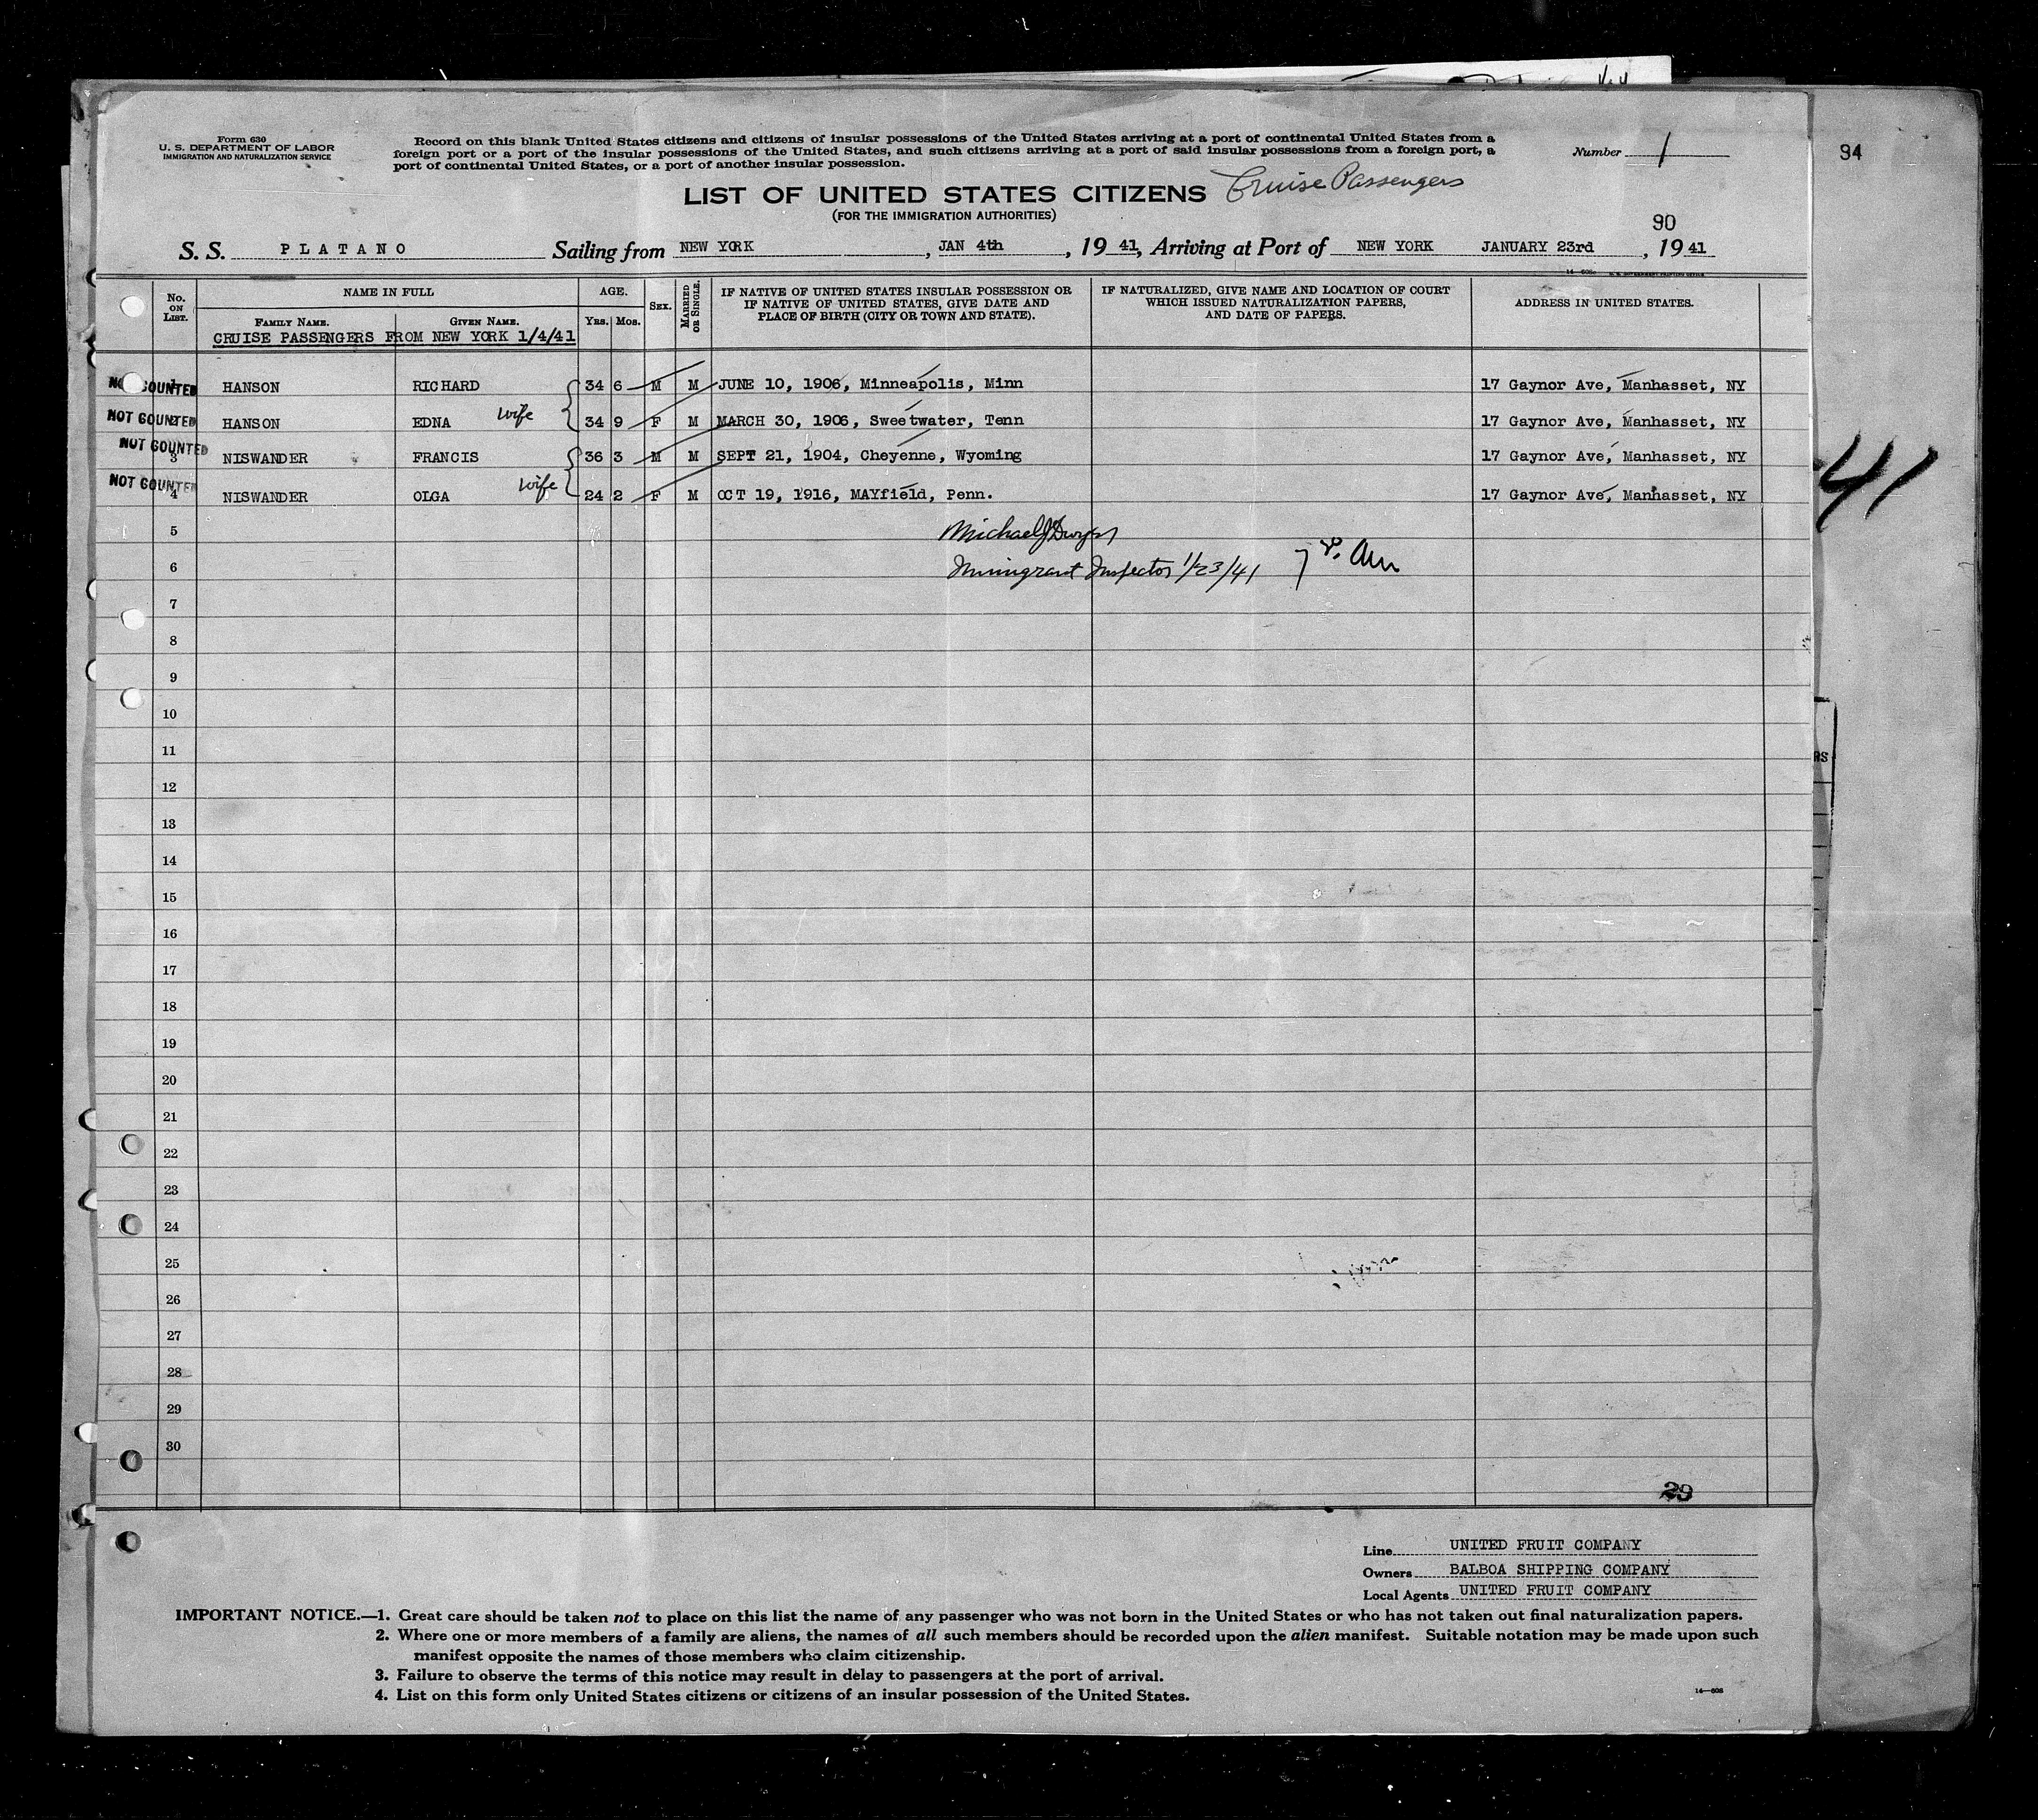 Form 630
U. S. DEPARTMENT OF LABOR
IMMIGRATION AND NATURALIZATION SERVICE
Record on this blank United States citizens and citizens of insular possessions of the United States arriving at a port of continental United States from a
foreign port or a port of the insular possessions of the United States, and such citizens arriving at a port of said insular possessions from a foreign port, a
port of continental United States, or a port of another insular possession.
Number 1
94
LIST OF UNITED STATES CITIZENS Cruise Passengers
(FOR THE IMMIGRATION AUTHORITIES)
90
S. S. PLATANO Sailing from NEW YORK, JAN 4th, 19 41, Arriving at Port of NEW YORK JANUARY 23rd, 19 41
No. ON LIST. NAME IN FULL AGE. SEX. MARRIED OR SINGLE. IF NATIVE OF UNITED STATES INSULAR POSSESSION OR IF NATIVE OF UNITED STATES, GIVE DATE AND PLACE OF BIRTH (CITY OR TOWN AND STATE). IF NATURALIZED, GIVE NAME AND LOCATION OF COURT WHICH ISSUED NATURALIZATION PAPERS, AND DATE OF PAPERS. ADDRESS IN UNITED STATES.
FAMILY NAME. GIVEN NAME. YRS. MOS.
CRUISE PASSENGERS FROM NEW YORK 1/4/41
NOT COUNTED 1 HANSON RICHARD 34 6 M M JUNE 10, 1906, Minneapolis, Minn 17 Gaynor Ave, Manhasset, NY
NOT COUNTED 2 HANSON EDNA wife 34 9 F M MARCH 30, 1906, Sweetwater, Tenn 17 Gaynor Ave, Manhasset, NY
NOT COUNTED 3 NISWANDER FRANCIS 36 3 M M SEPT 21, 1904, Cheyenne, Wyoming 17 Gaynor Ave, Manhasset, NY
NOT COUNTED 4 NISWANDER OLGA wife 24 2 F M OCT 19, 1916, MAYfield, Penn. 17 Gaynor Ave, Manhasset, NY
41
5 Michael J Dwyer
6 Immigrant Inspector 1/23/41
7
8
9
10
11
12
13
14
15
16
17
18
19
20
21
22
23
24
25
26
27
28
29
30
29
Line UNITED FRUIT COMPANY
Owners BALBOA SHIPPING COMPANY
Local Agents UNITED FRUIT COMPANY
IMPORTANT NOTICE.—1. Great care should be taken not to place on this list the name of any passenger who was not born in the United States or who has not taken out final naturalization papers.
2. Where one or more members of a family are aliens, the names of all such members should be recorded upon the alien manifest. Suitable notation may be made upon such
manifest opposite the names of those members who claim citizenship.
3. Failure to observe the terms of this notice may result in delay to passengers at the port of arrival.
4. List on this form only United States citizens or citizens of an insular possession of the United States.
14—608